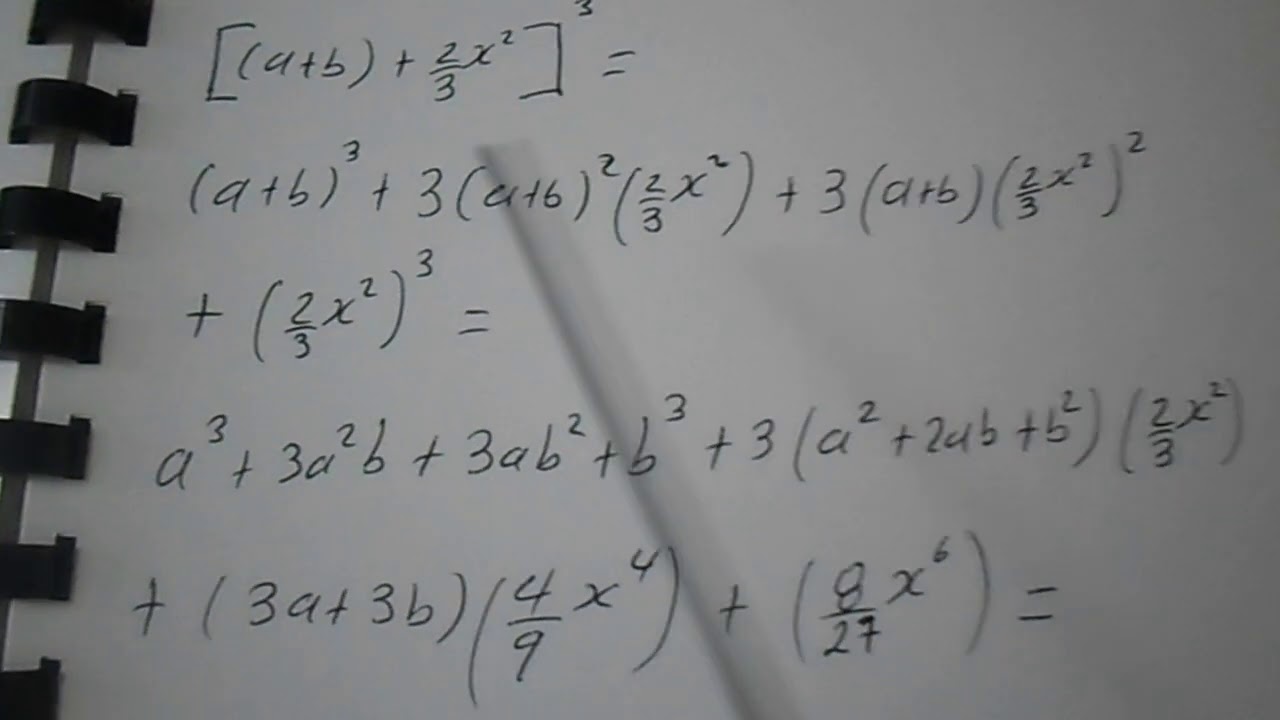 [(a+b) + 2/3 x²]³ =
(a+b)³ + 3(a+b)²(2/3 x²) + 3(a+b)(2/3 x²)²
+ (2/3 x²)³ =
a³ + 3a²b + 3ab² + b³ + 3(a² + 2ab + b²)(2/3 x²)
+ (3a+3b)(4/9 x⁴) + (8/27 x⁶) =